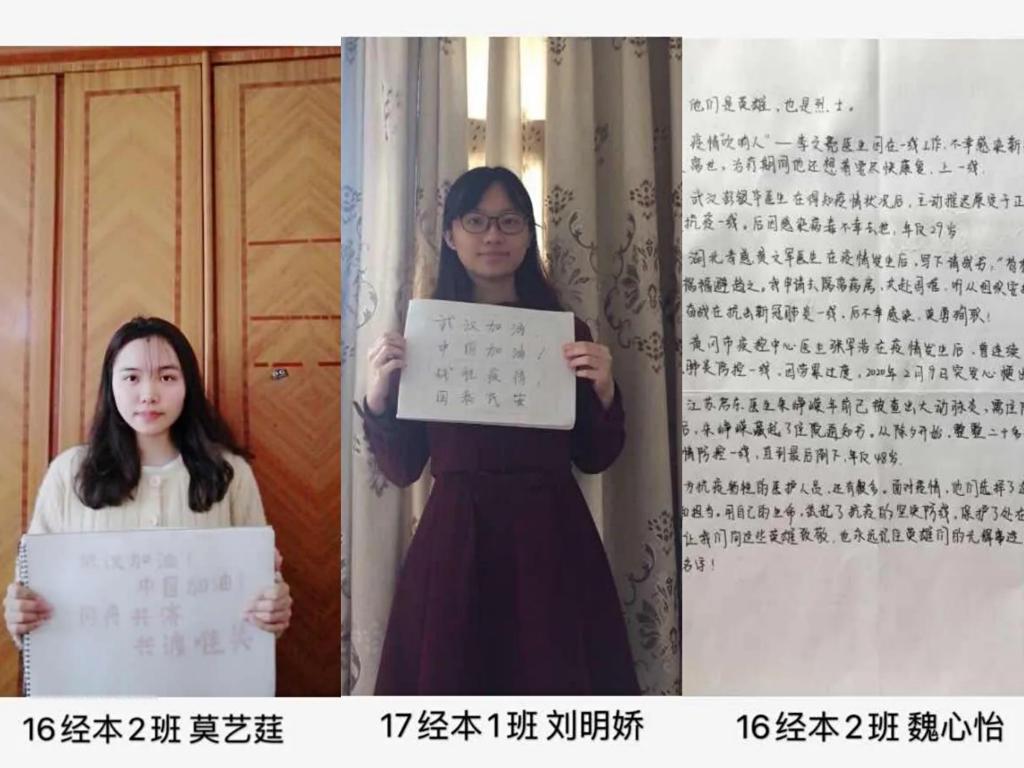 武汉加油!
中国加油!
同舟共济
共渡难关
武汉加油,
中国加油!
战胜疫情,
国泰民安
他们是英雄,也是烈士。
疫情"吹哨人"——李文亮医生因在一线工作,不幸感染新
离世。治疗期间他还想着要尽快康复,上一线.
武汉彭银华医生在得知疫情状况后,主动推迟原定于正
抗疫一线。后因感染病毒不幸去世,年仅29岁
湖北孝感黄文军医生在疫情发生后,写下请战书,"苟
祸福避趋之。我申请去隔离病房,共赴国难,听从组织安
奋战在抗击新冠肺炎一线。后不幸感染,英勇殉职!
黄冈市疫控中心医生张军浩在疫情发生后,曾连续
肺炎防控一线,因劳累过度,2020年2月9日突发心梗
江苏启东医生朱峥嵘年前已被查出大动脉炎,需住
后,朱峥嵘藏起了住院通知书。从除夕开始,整整二十
情防控一线,直到最后倒下,年仅48岁.
为抗疫牺牲的医护人员,还有很多。面对疫情,他们选择了
和担当。用自己的生命,筑起了抗疫的坚实防线,保护了处在
让我们向这些英雄致敬,也永远记住英雄们的光辉事迹
名字!
16经本2班 莫艺莛
17经本1班 刘明娇
16经本2班 魏心怡